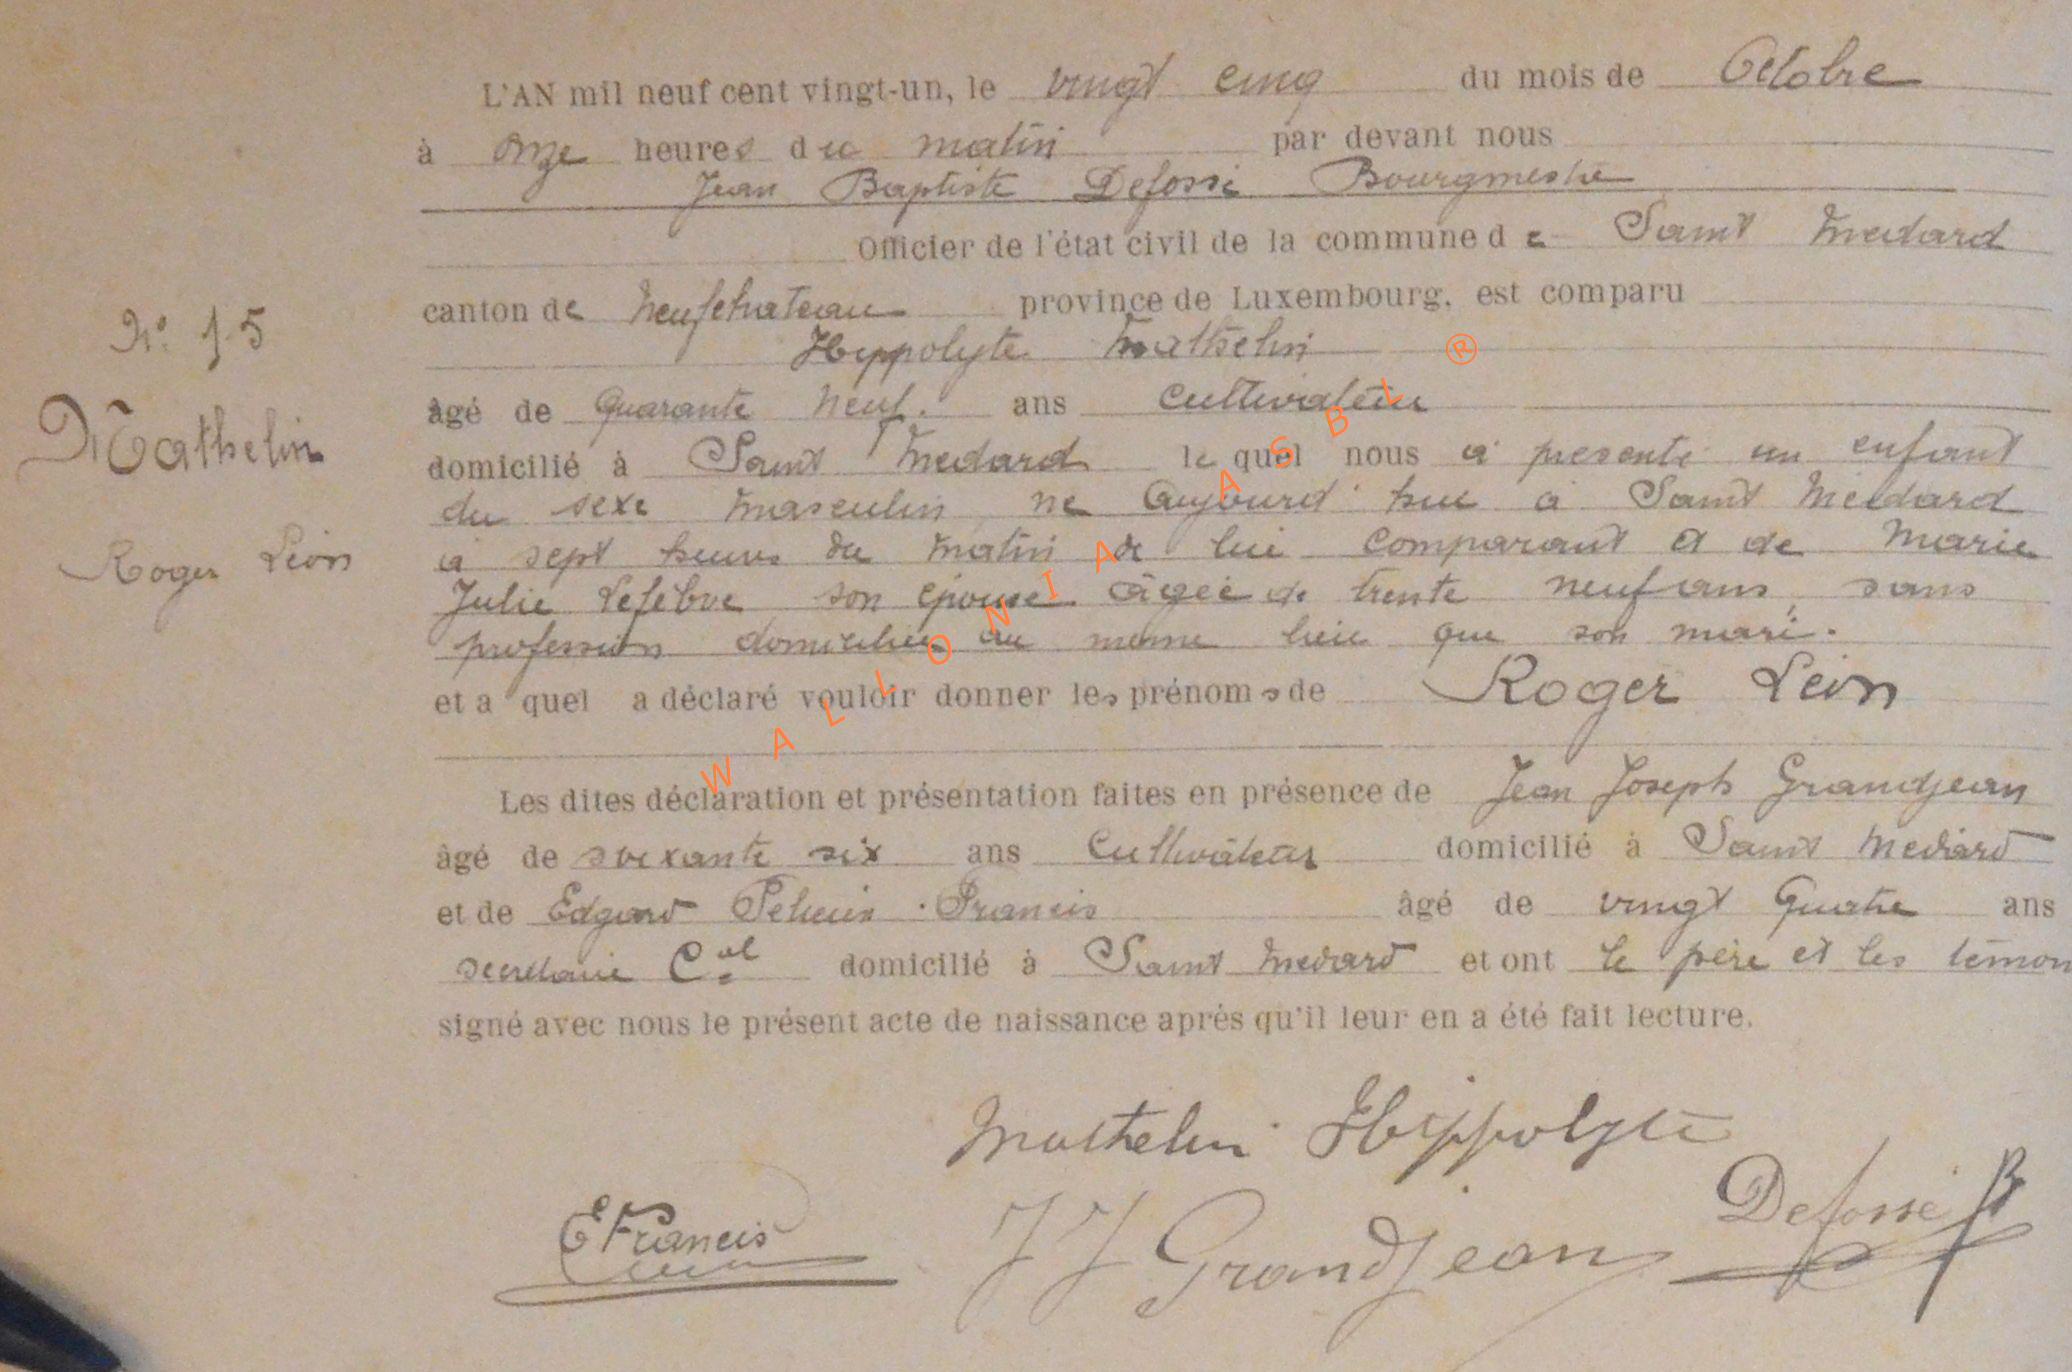 L'AN mil neuf cent vingt-un, le vingt cinq du mois de Octobre
à onze heures du matin par devant nous
Jean Baptiste Defossé Bourgmestre
Officier de l'état civil de la commune de Saint Medard
canton de Neufchateau province de Luxembourg, est comparu
Hippolyte Mathelin
N° 15
âgé de Quarante neuf ans cultivateur
Mathelin
domicilié à Saint Medard lequel nous a presenté un enfant
du sexe masculin né Aujourd'hui à Saint Medard
Roger Léon
à sept heures du matin de lui comparant et de Marie
Julie Lefebvre son épouse âgée de trente neuf ans, sans
profession domiciliée au meme lieu que son mari.
et a quel a déclaré vouloir donner les prénoms de Roger Léon
Les dites déclaration et présentation faites en présence de Jean Joseph Grandjean
âgé de soixante six ans Cultivateur domicilié à Saint Medard
et de Edgard Francis âgé de vingt Quatre ans
secretaire Cal domicilié à Saint Medard et ont le père et les témoin
signé avec nous le présent acte de naissance après qu'il leur en a été fait lecture.
Mathelin Hippolyte
E Francis JJ Grandjean Defossé JB
WALLONIA ASBL ®